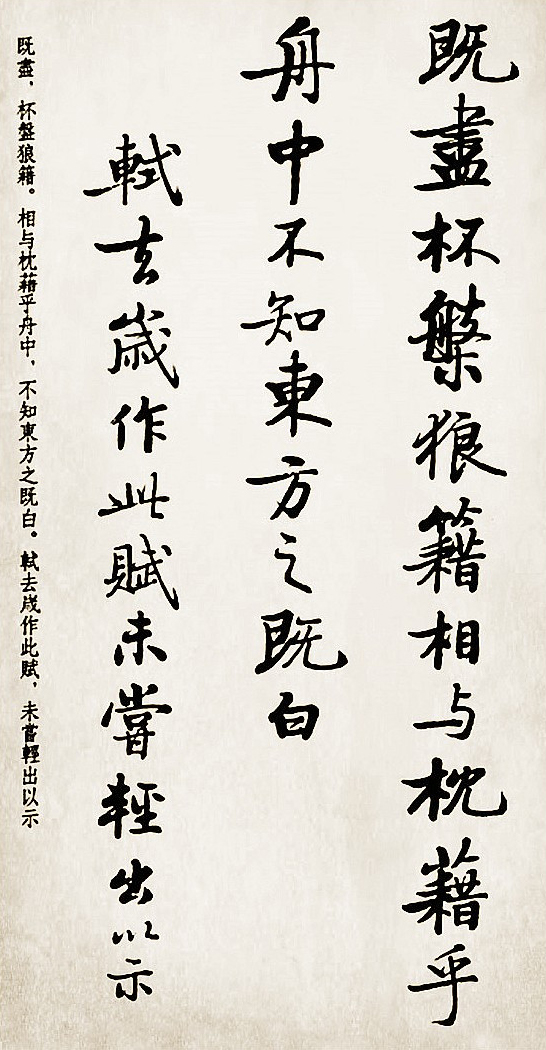 既盡杯槃狼籍相与枕藉乎
舟中不知東方之既白
軾去歲作此賦未嘗輕出以示
既盡，杯盤狼籍。相与枕藉乎舟中，不知東方之既白。軾去歲作此賦，未嘗輕出以示